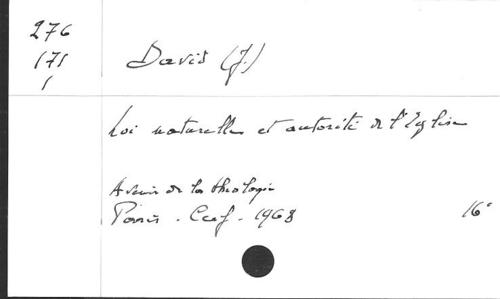 276
171
1
David (J.)
Loi naturelle et autorité de l'Eglise
Avenir de la théologie
Paris - Cerf - 1968 16°